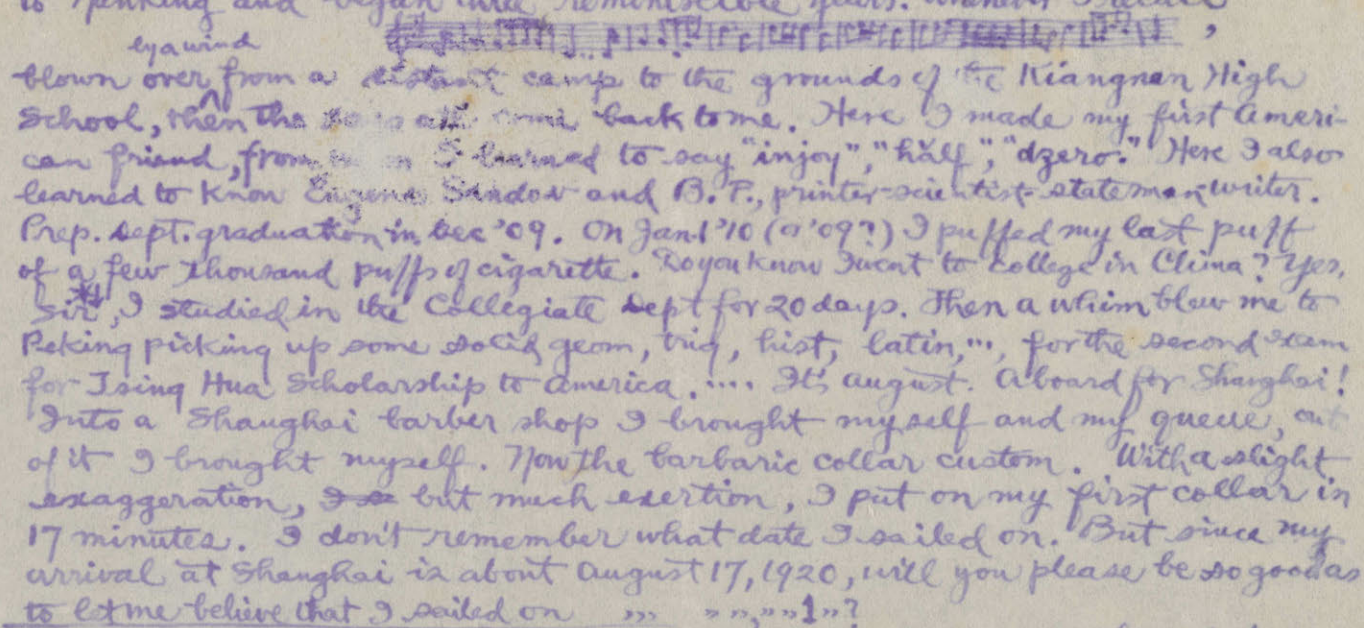 to Nanking and began three reminiscible years. Whenever I recall
,
by a wind
blown over from a distant camp to the grounds of the Kiangnan High
School, then the days all come back to me. Here I made my first Ameri-
can friend, from whom I learned to say "injoy", "hălf", "dzero." Here I also
learned to know Eugene Sandow and B. F., printer-scientist-statesman-writer.
Prep. dept. graduation in Dec '09. On Jan 1 '10 (or '09?) I puffed my last puff
of a few thousand puffs of cigarette. Do you know I went to college in China? Yes,
Sir*, I studied in the Collegiate Dept for 20 days. Then a whim blew me to
Peking picking up some solid geom, trig, hist, latin, ..., for the second exam
for Tsing Hua Scholarship to America. .... It's August. Aboard for Shanghai!
Into a Shanghai barber shop I brought myself and my queue, out
of it I brought myself. Now the barbaric collar custom. With a slight
exaggeration, but much exertion, I put on my first collar in
17 minutes. I don't remember what date I sailed on. But since my
arrival at Shanghai is about August 17, 1920, will you please be so good as
to let me believe that I sailed on ,,, ,, ,,, ,,1,,?